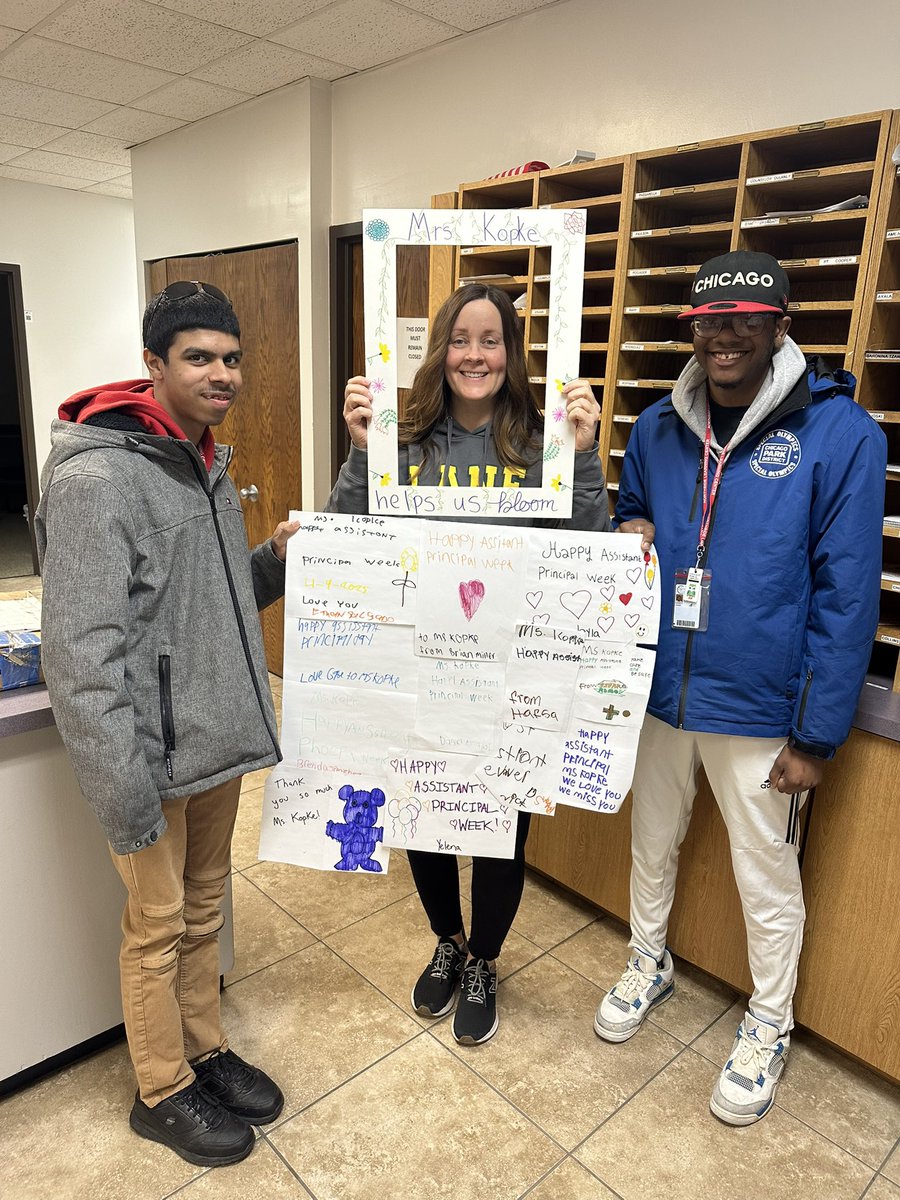 Mrs. Kopke
helps us bloom
CHICAGO
LANE
THIS DOOR
MUST
REMAIN
CLOSED
CHICAGO
PARK
DISTRICT
SPECIAL OLYMPICS
COOPER
Ms. Kopke
happy assistant
Principal week
4-4-2025
Love you
happy assistant
principal day
Love
to ms Kopke
Happy Assitent
principal week
to ms KOPKE
from Brian Miller
Ms Kopke
Happy Assistant
Principal week
Happy Assistant
Principal Week
Kyla
Ms. Kopke
Happy Assist
from
Hafsa
Ms Kopke
Happy Assistant
Principal week
from
Happy
Assistant
principal
Ms Kopke
we Love you
we miss you
Thank
you so much
Ms. Kopke!
HAPPY
ASSISTANT
PRINCIPAL
WEEK!
Yelena